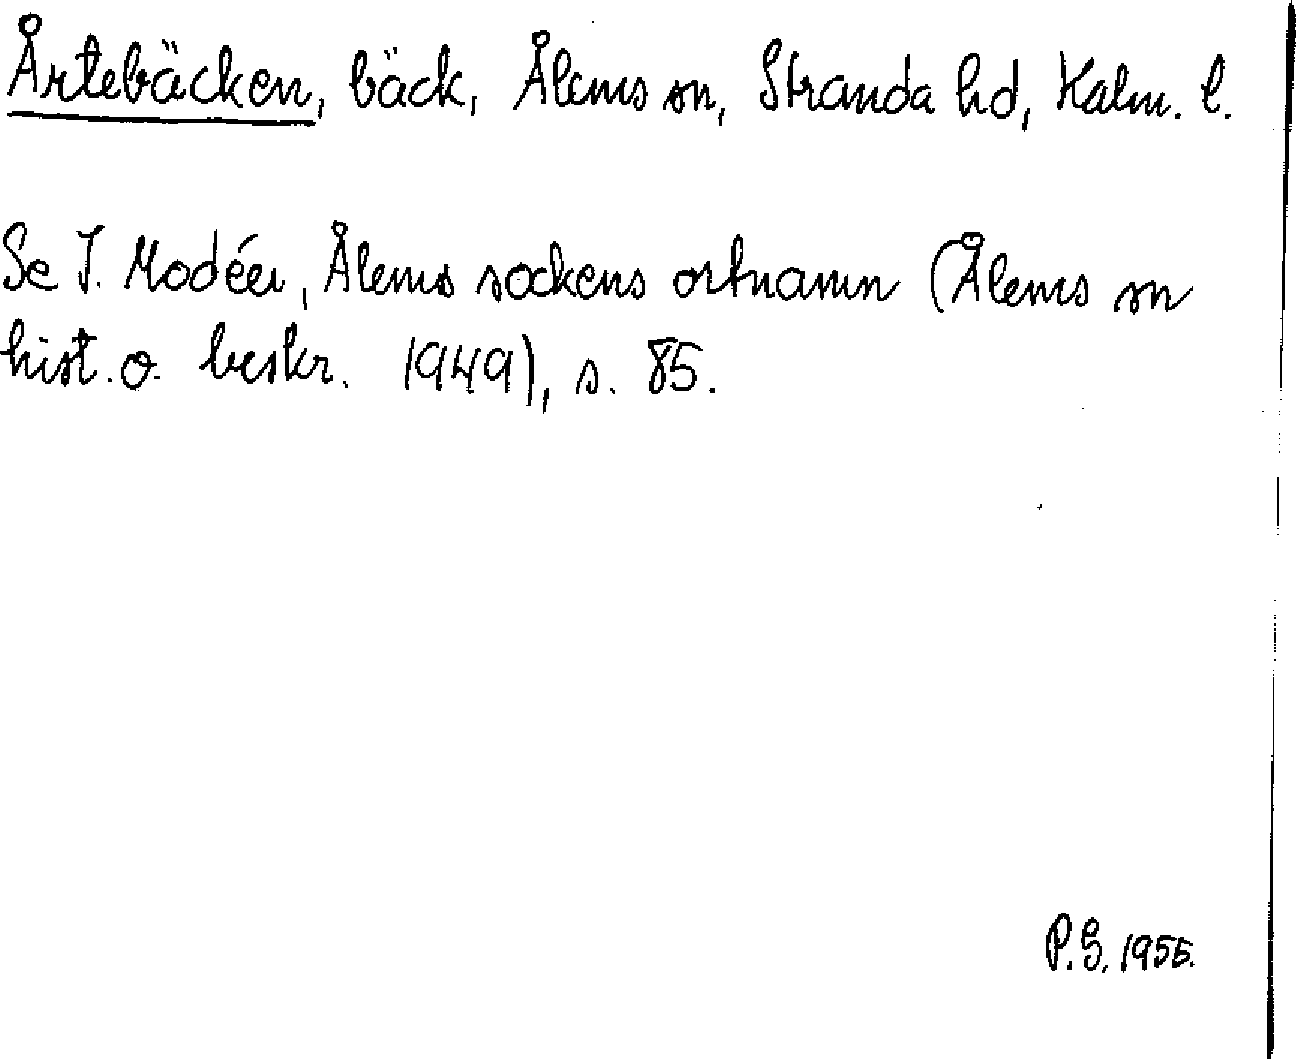 Årtebäcken, bäck, Ålems sn, Stranda hd, Kalm. l.
Se I. Modéer, Ålems sockens ortnamn (Ålems sn
hist. o. beskr. 1949), s. 85.
P.G. 1955.